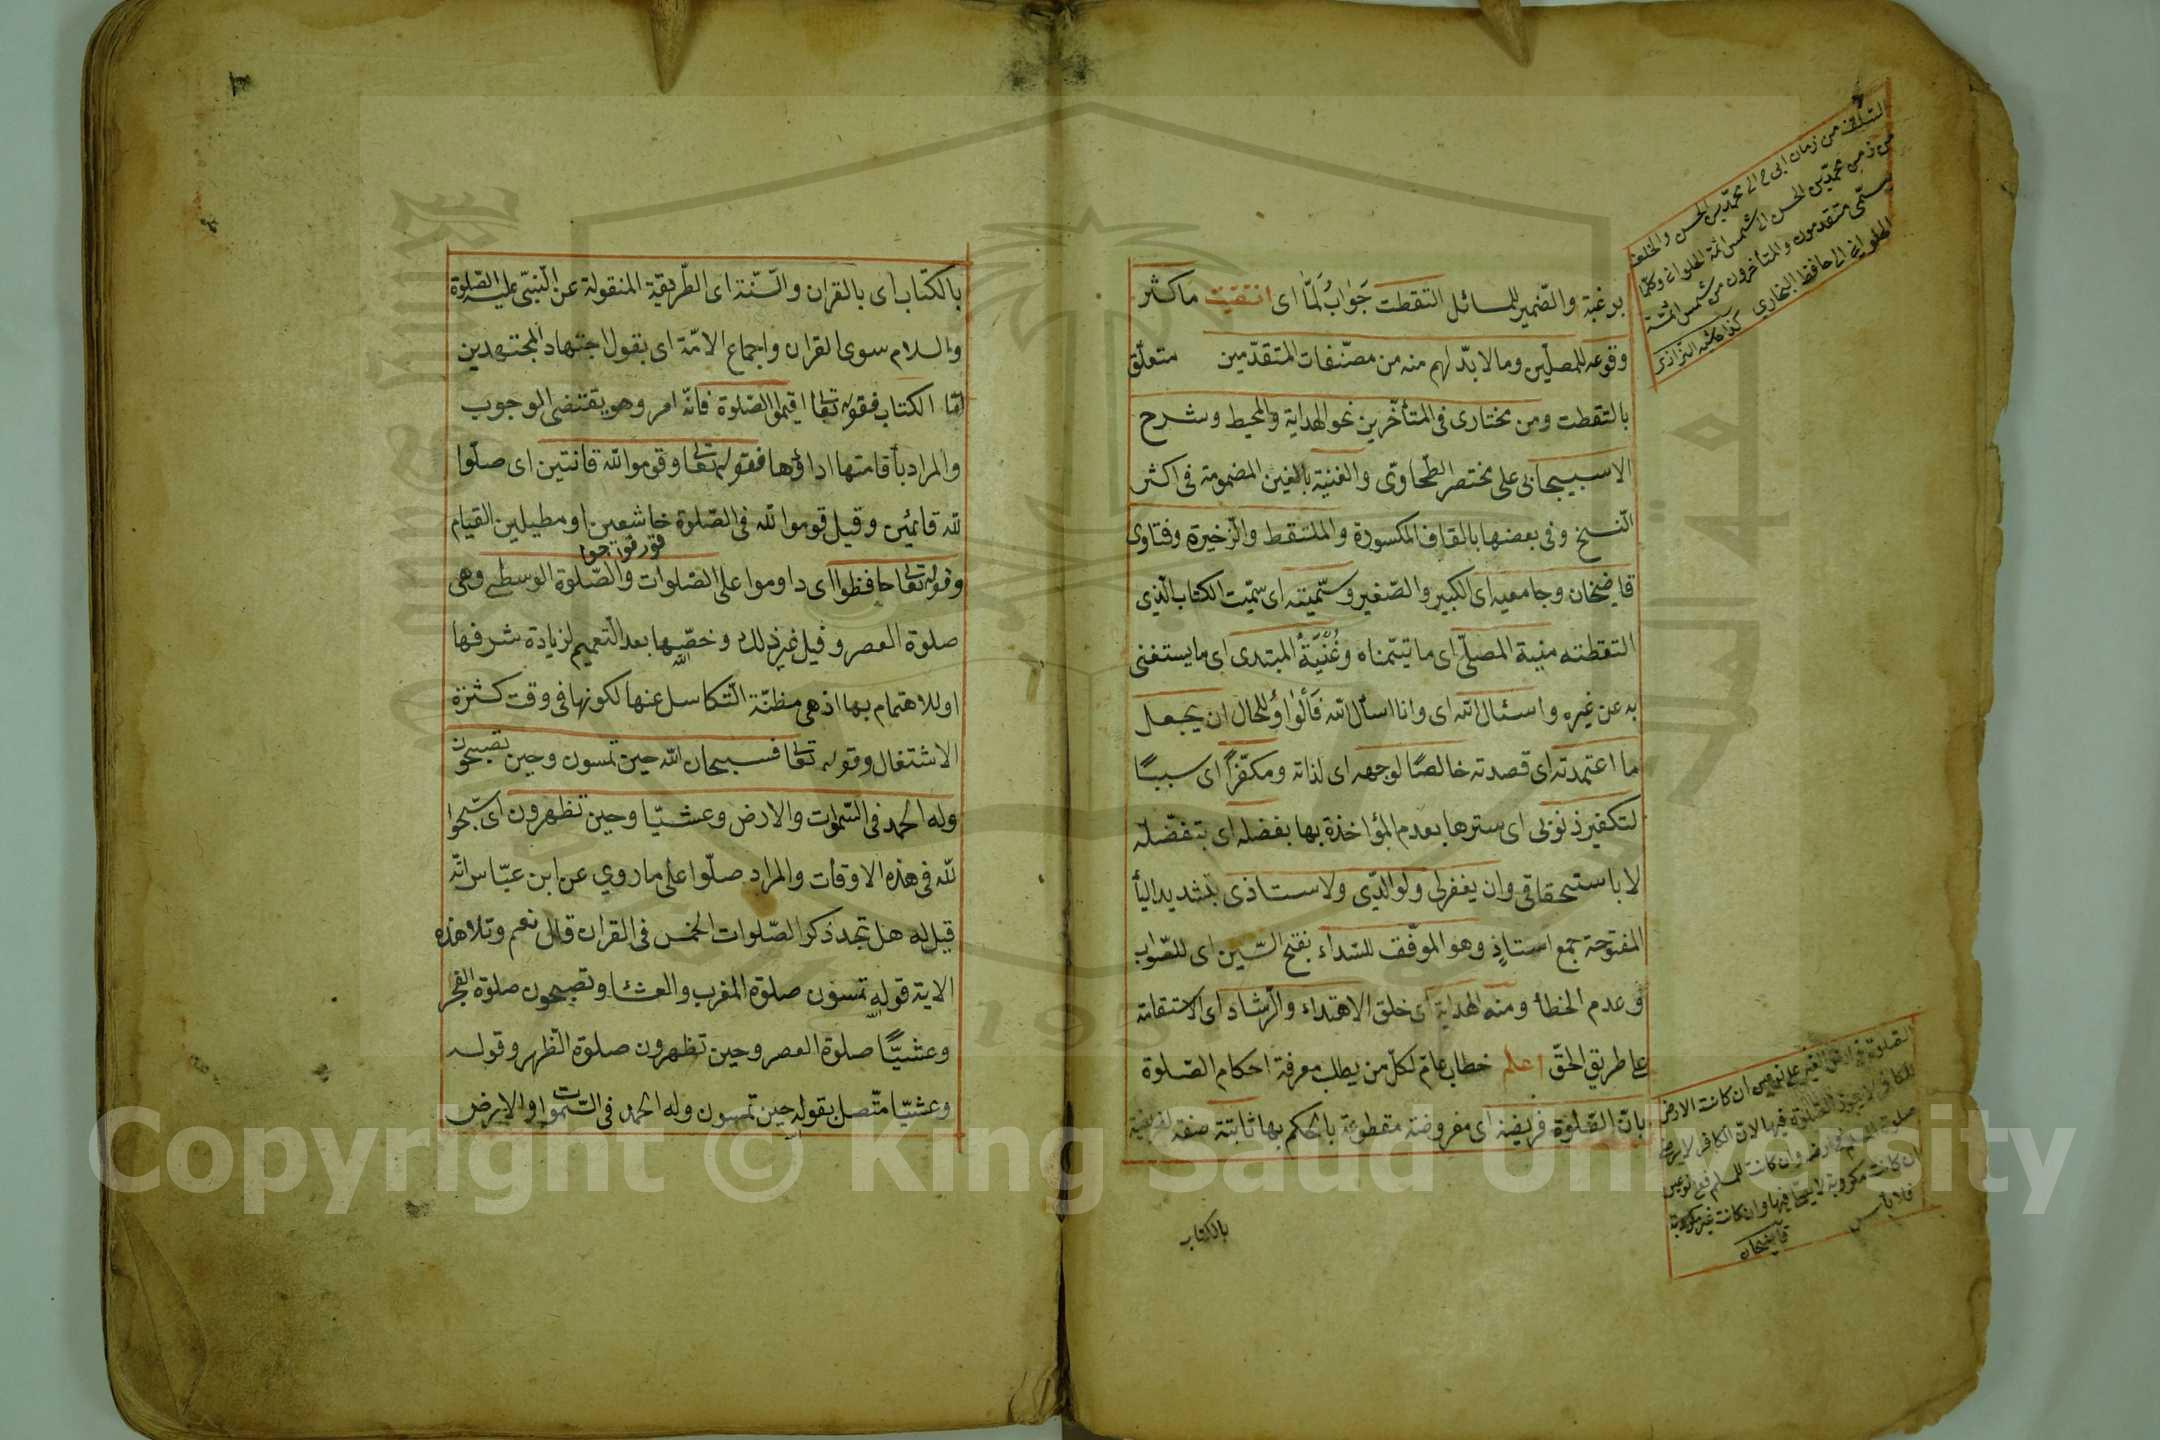 برغبة والضمير للمسائل التقطت جواب لما اى انتقيت ما كثر
وقوعه للمصلين وما لابد لهم منه من مصنفات المتقدمين متعلق
بالتقطت ومن مختارى فى المتأخرين نحو الهداية والمحيط وشرح
الاسبيجابى على مختصر الطحاوى والغنية بالغين المضمومة فى اكثر
النسخ وفى بعضها بالقاف المكسورة والملتقط والزخيرة وفتاوى
قاضيخان وجامعيه اى الكبير والصغير وسميته اى سميت الكتاب الذي
التقطته منية المصلى اى ما تيتمناه وغنية المبتدى اى ما يستغنى
به عن غيره واسئال الله اى وانا اسأل الله فالواو للحال ان يجعل
ما اعتمدته اى قصدته خالصا لوجهه اى لذاته ومكفرا اى سببا
لتكفير ذنوبى اى سترها بعدم المؤاخذة بها بفضله اى بتفضله
لا باستحقاقى وان يغفر لى ولوالدى ولاستاذى بتشديد اليأ
المفتوحة جمع استاذ وهو الموفق للسداد بفتح السين اى للصواب
وعدم الخطأ ومنه الهداية اى خلق الاهتداء والرشاد اى الاستقامة
على طريق الحق اعلم خطاب عام لكل من يطلب معرفة احكام الصلوة
بان الصلوة فريضة اى مفروضة مقطوعة بالحكم بها ثابتة صفة لفريضة
بالكتاب
السلف من زمان ابى ح الى محمد بن الحسن والخلف
من زمن محمد بن الحسن الى شمس ائمة الحلوانى وكلها
يسمى متقدمون والمتأخرون من شمس ائمة
الحلوانى الى حافظ البخارى كذا
الصلوة فى ارض الغير على نوعين ان كانت الارض
للكافر لا يجوز الصلوة فيها لان الكافر لا يرضى
صلوة المسلم فى ارضه وان كانت للمسلم فعلى نوعين
ان كانت مكروبة لا يصلى فيها وان كانت غير مكروبة
فلا بأس
قاضيخان
بالكتاب اى بالقران والسنة اى الطريقة المنقولة عن النبى عليه الصلوة
والسلام سوى القران واجماع الامة اى بقول اجتهاد المجتهدين
اما الكتاب فقوله تعا اقيموا الصلوة فانه امر وهو يقتضى الوجوب
والمراد بأقامتها اداؤها فقوله تعا وقوموا لله قانتين اى صلوا
لله قائمين وقيل قوموا لله فى الصلوة خاشعين او مطيلين القيام
وقوله تعا حافظوا اى داوموا على الصلوات والصلوة الوسطى وهى
صلوة العصر وقيل غير ذلك وخصها الله بعد التعميم لزيادة شرفها
او للاهتمام بها اذ هى مظنة التكاسل عنها لكونها فى وقت كثرة
الاشتغال وقوله تعا فسبحان الله حين تمسون وحين تصبحون
وله الحمد فى السموات والارض وعشيا وحين تظهرون اى سبحوا
لله فى هذه الاوقات والمراد صلوا على ما روي عن ابن عباس انه
قيل له هل تجد ذكر الصلوات الخمس فى القران قال نعم وتلا هذه
الاية قوله تمسون صلوة المغرب والعشا وتصبحون صلوة الفجر
وعشيا صلوة العصر وحين تظهرون صلوة الظهر وقوله
وعشيا متصل بقوله حين تمسون وله الحمد فى السموات والارض
Copyright © King Saud University